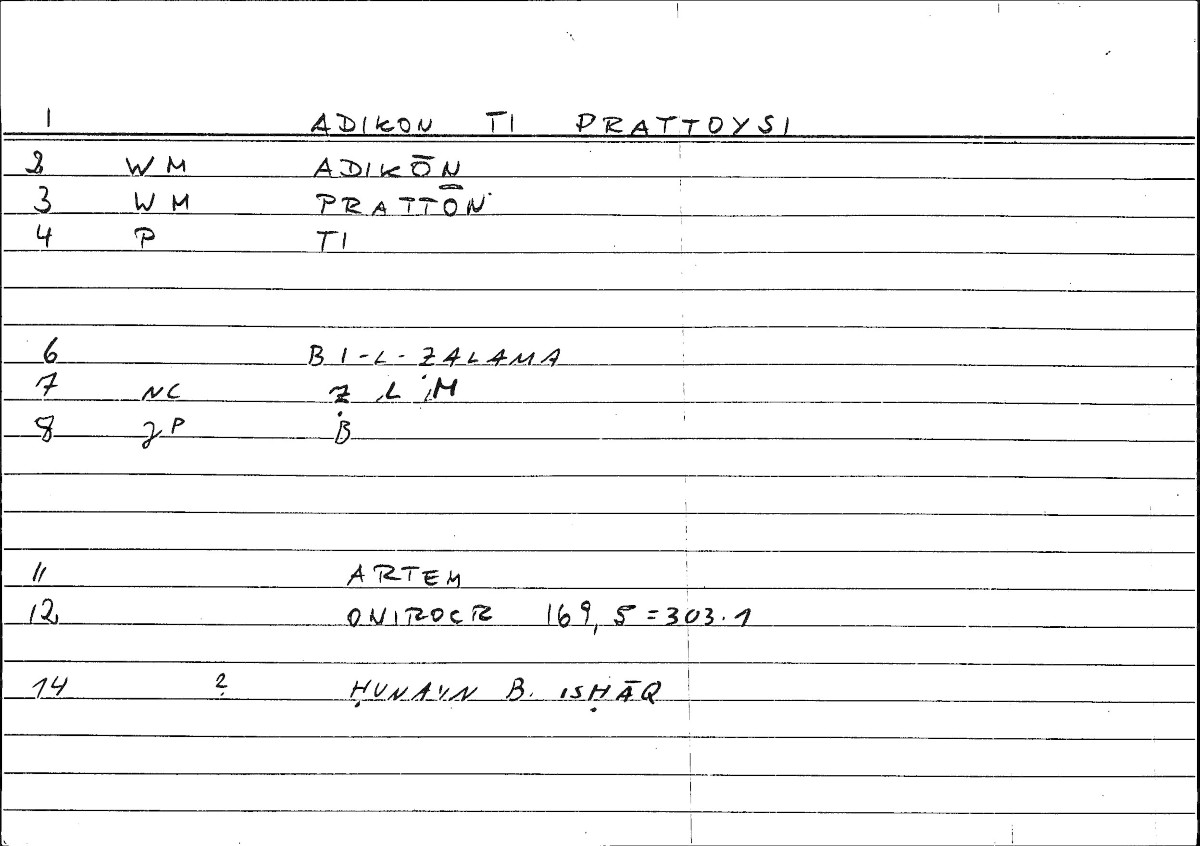 1 ADIKON TI PRATTOYSI
2 WM ADIKŌN
3 WM PRATTŌN
4 P TI
6 BI-L-ẒALAMA
7 NC Ẓ L M
8 gP B
11 ARTEM
12 ONIROCR 169,5=303.1
14 2 ḤUNAYN B. ISḤĀQ